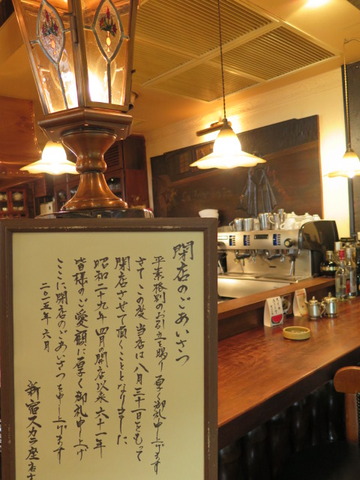 閉店のごあいさつ
平素格別のお引立を賜り厚く御礼申上げます
さてこの度、当店は八月三十一日をもって
閉店させて頂くこととなりました
昭和二十九年四月の開店以来六十一年
皆様のご愛顧に厚く御礼申上げ
ここに閉店のごあいさつを申し上げます
二〇一五年六月
新宿スカラ座